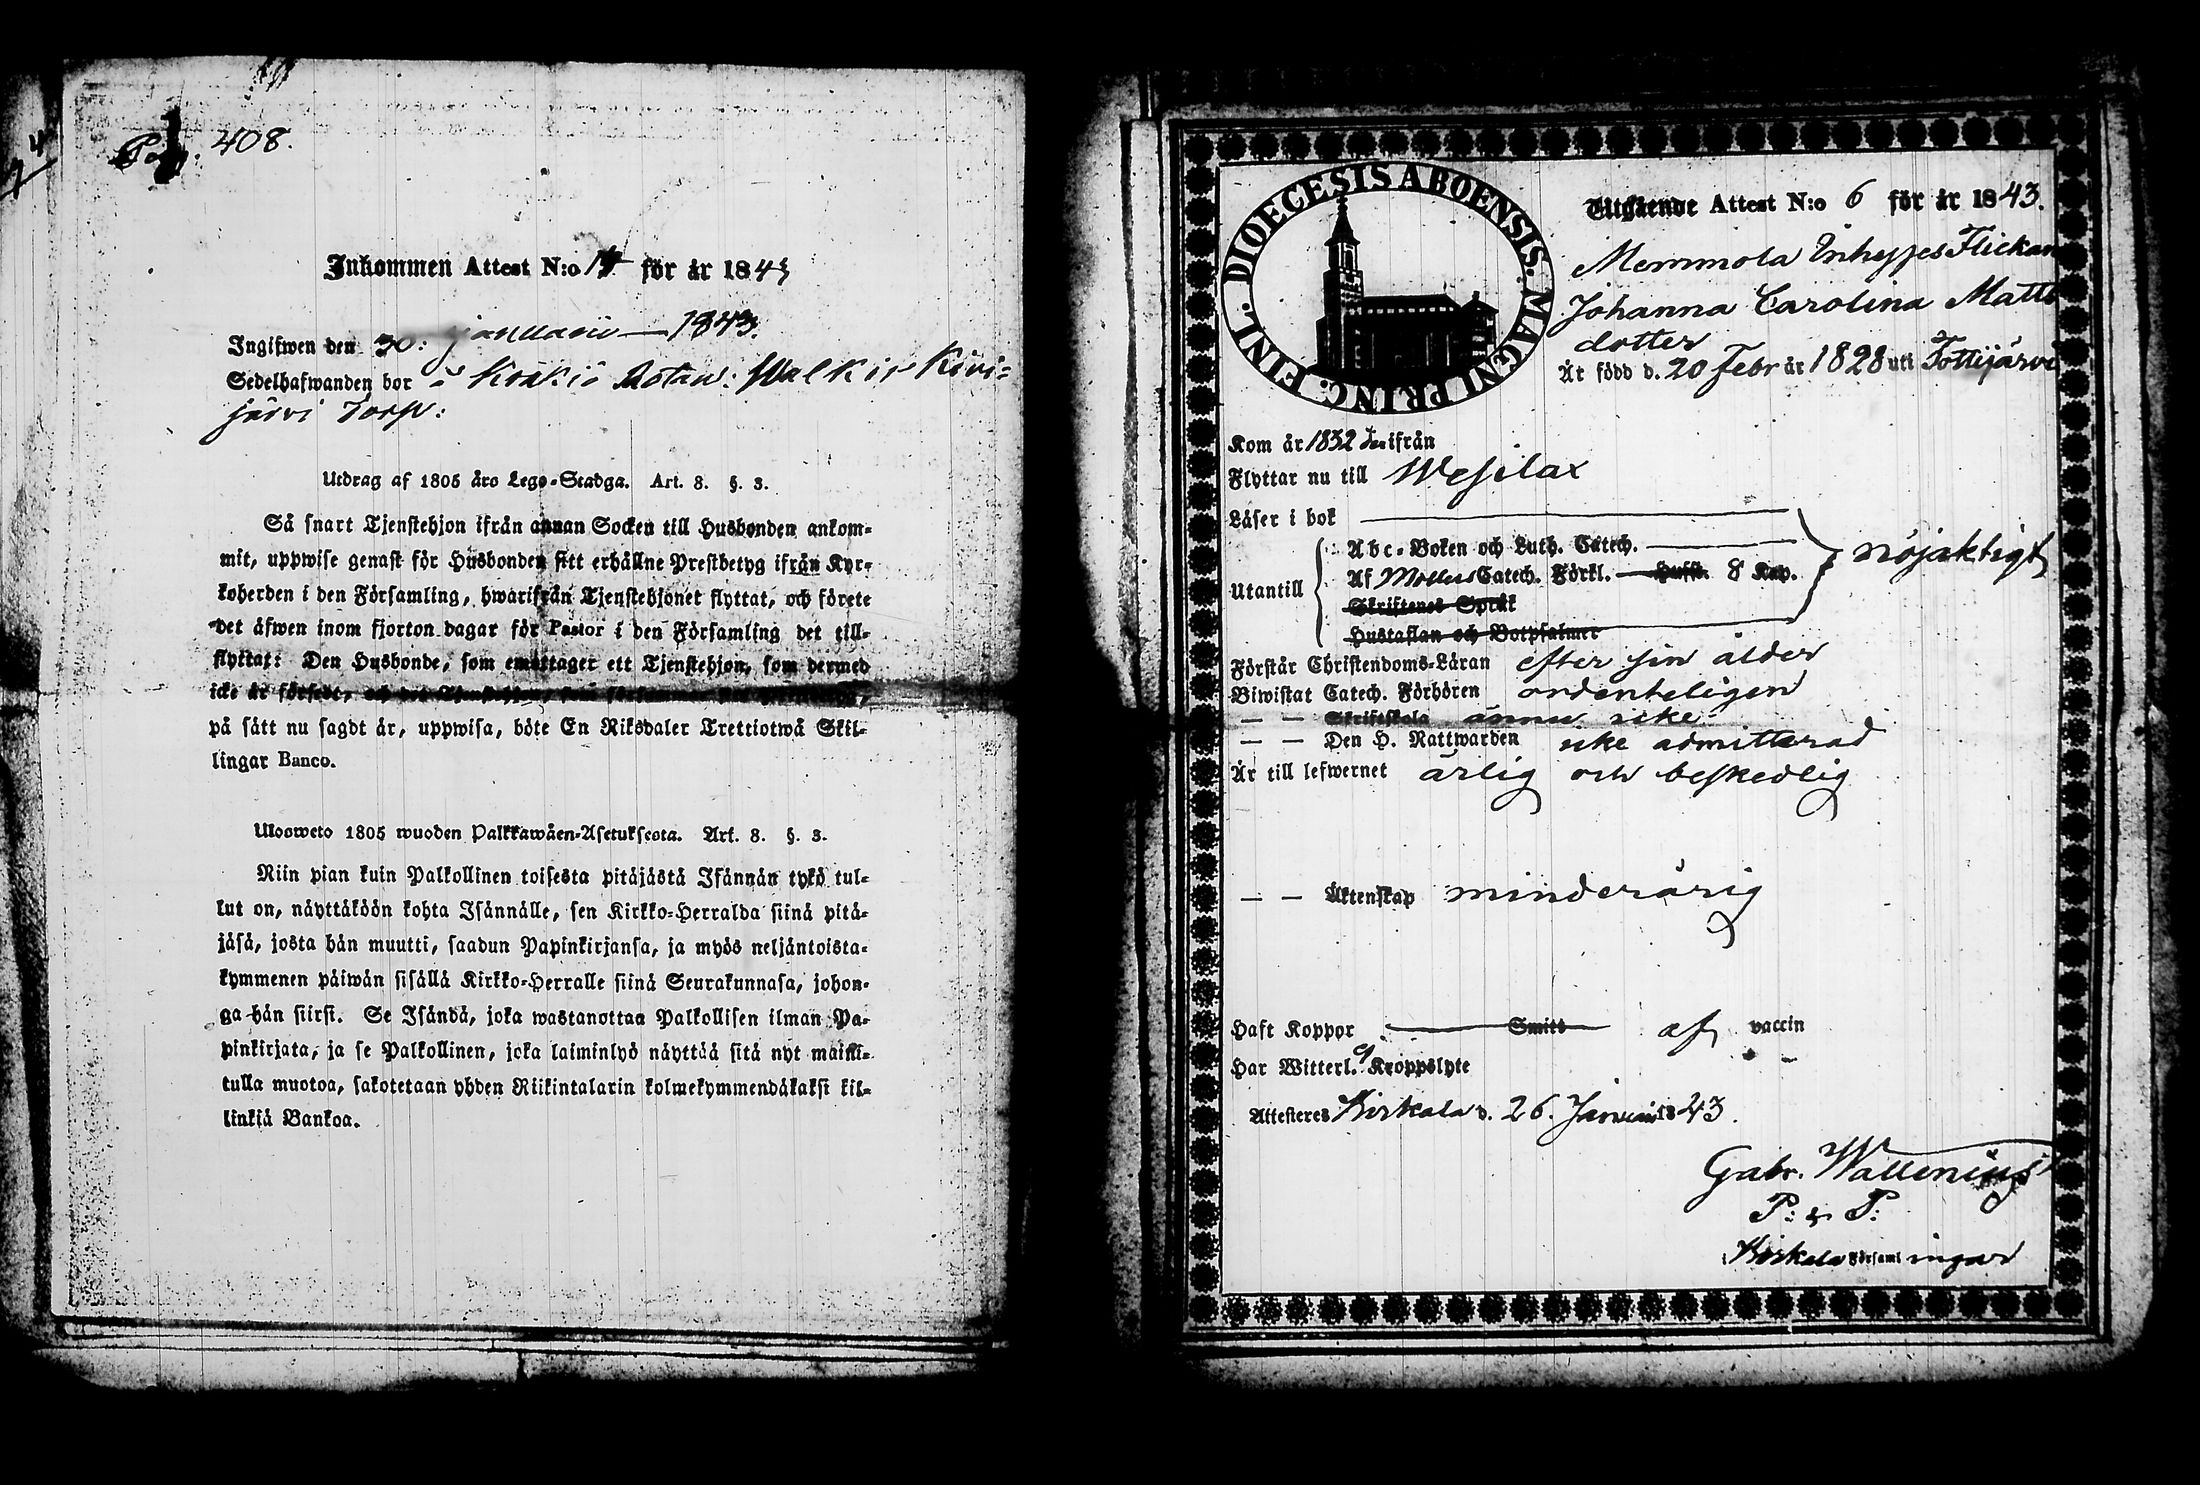 Pag: 408.
Inkommen Attest N:o 14 för år 1843
Ingifwen den 30: januarii — 1843.
Sedelhafwanden bor i Koskis Walkis Kivi=
järvi Torp:
Utdrag af 1805 års Lego-Stadga. Art. 8. §. 3.
Så snart Tjenstehjon ifrån annan Socken till Husbonden ankom=
mit, uppwise genast för Husbonden sitt erhållne Prestbetyg ifrån Kyr=
koherden i den Församling, hwarifrån Tjenstehjonet flyttat, och förete
det äfwen inom fjorton dagar för Pastor i den Församling det till=
flyttat: Den Husbonde, som emottager ett Tjenstehjon, som dermed
icke är försedt, och det Tjenstehjon, som
på sätt nu sagdt är, uppwisa, böte En Riksdaler Trettiotwå Skil=
lingar Banco.
Ulosweto 1805 wuoden Palkkawäen-Asetuksesta. Art. 8. §. 3.
Niin pian kuin Palkollinen toisesta pitäjästä Isännän tykö tul=
lut on, näyttäköön kohta Isännälle, sen Kirkko-Herralda siinä pitä=
jäsä, josta hän muutti, saadun Papinkirjansa, ja myös neljäntoista=
kymmenen päiwän sisällä Kirkko-Herralle siinä Seurakunnasa, johon=
ga hän siirsi. Se Isändä, joka wastanottaa Palkollisen ilman Pa=
pinkirjata, ja se Palkollinen, joka laiminlyö näyttää sitä nyt maini=
tulla muotoa, sakotetaan yhden Riikintalarin kolmekymmendäkaksi kil=
linkiä Bankoa.
DIOECESIS ABOENSIS. MAGNI PRINC. FINL.
Utgående Attest N:o 6 för år 1843.
Memmola Inhyses Flickan
Johanna Carolina Matts
dotter
Är född d. 20 Febr år 1828 uti Tottijärvi
Kom år 1832 ifrån
Flyttar nu till Wesilax
Läser i bok
Abc-Boken och Luth. Catech.
Utantill Af Möllers Catech. Förkl. Husta. 8 Kap. nöjaktigt
Skriftenes Språk
Hustaflan och Botpsalmer
Förstår Christendoms-Läran efter sin ålder
Biwistat Catech. Förhören ordenteligen
— — Skriftskola ännu icke
— — Den H. Nattwarden icke admitterad
Är till lefwernet ärlig och beskedlig
— — Äktenskap minderårig
Haft Koppor Smitt af vaccin
Har Witterl. Kroppslyte —
Attesteres Birkala d. 26. Januari 1843.
Gabr. Wallenius
P: & P:
i Birkala Församlingar